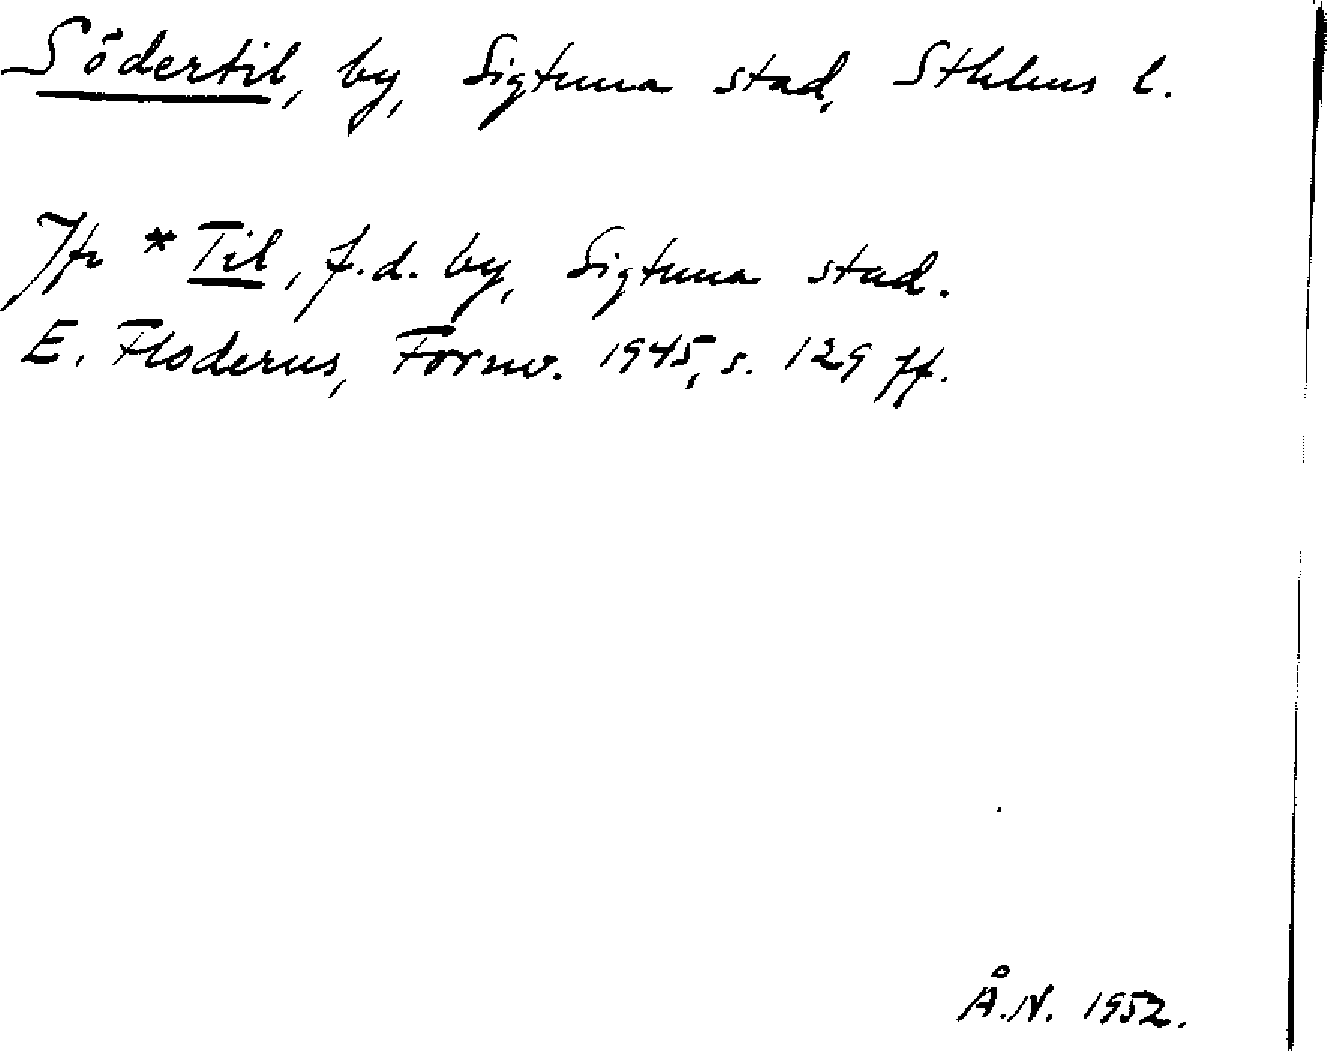 Södertil, by, Sigtuna stad, Sthlms l.
Jfr *Til, f.d. by, Sigtuna stad.
E. Floderus, Fornv. 1945, s. 129 ff.
Å.N. 1952.